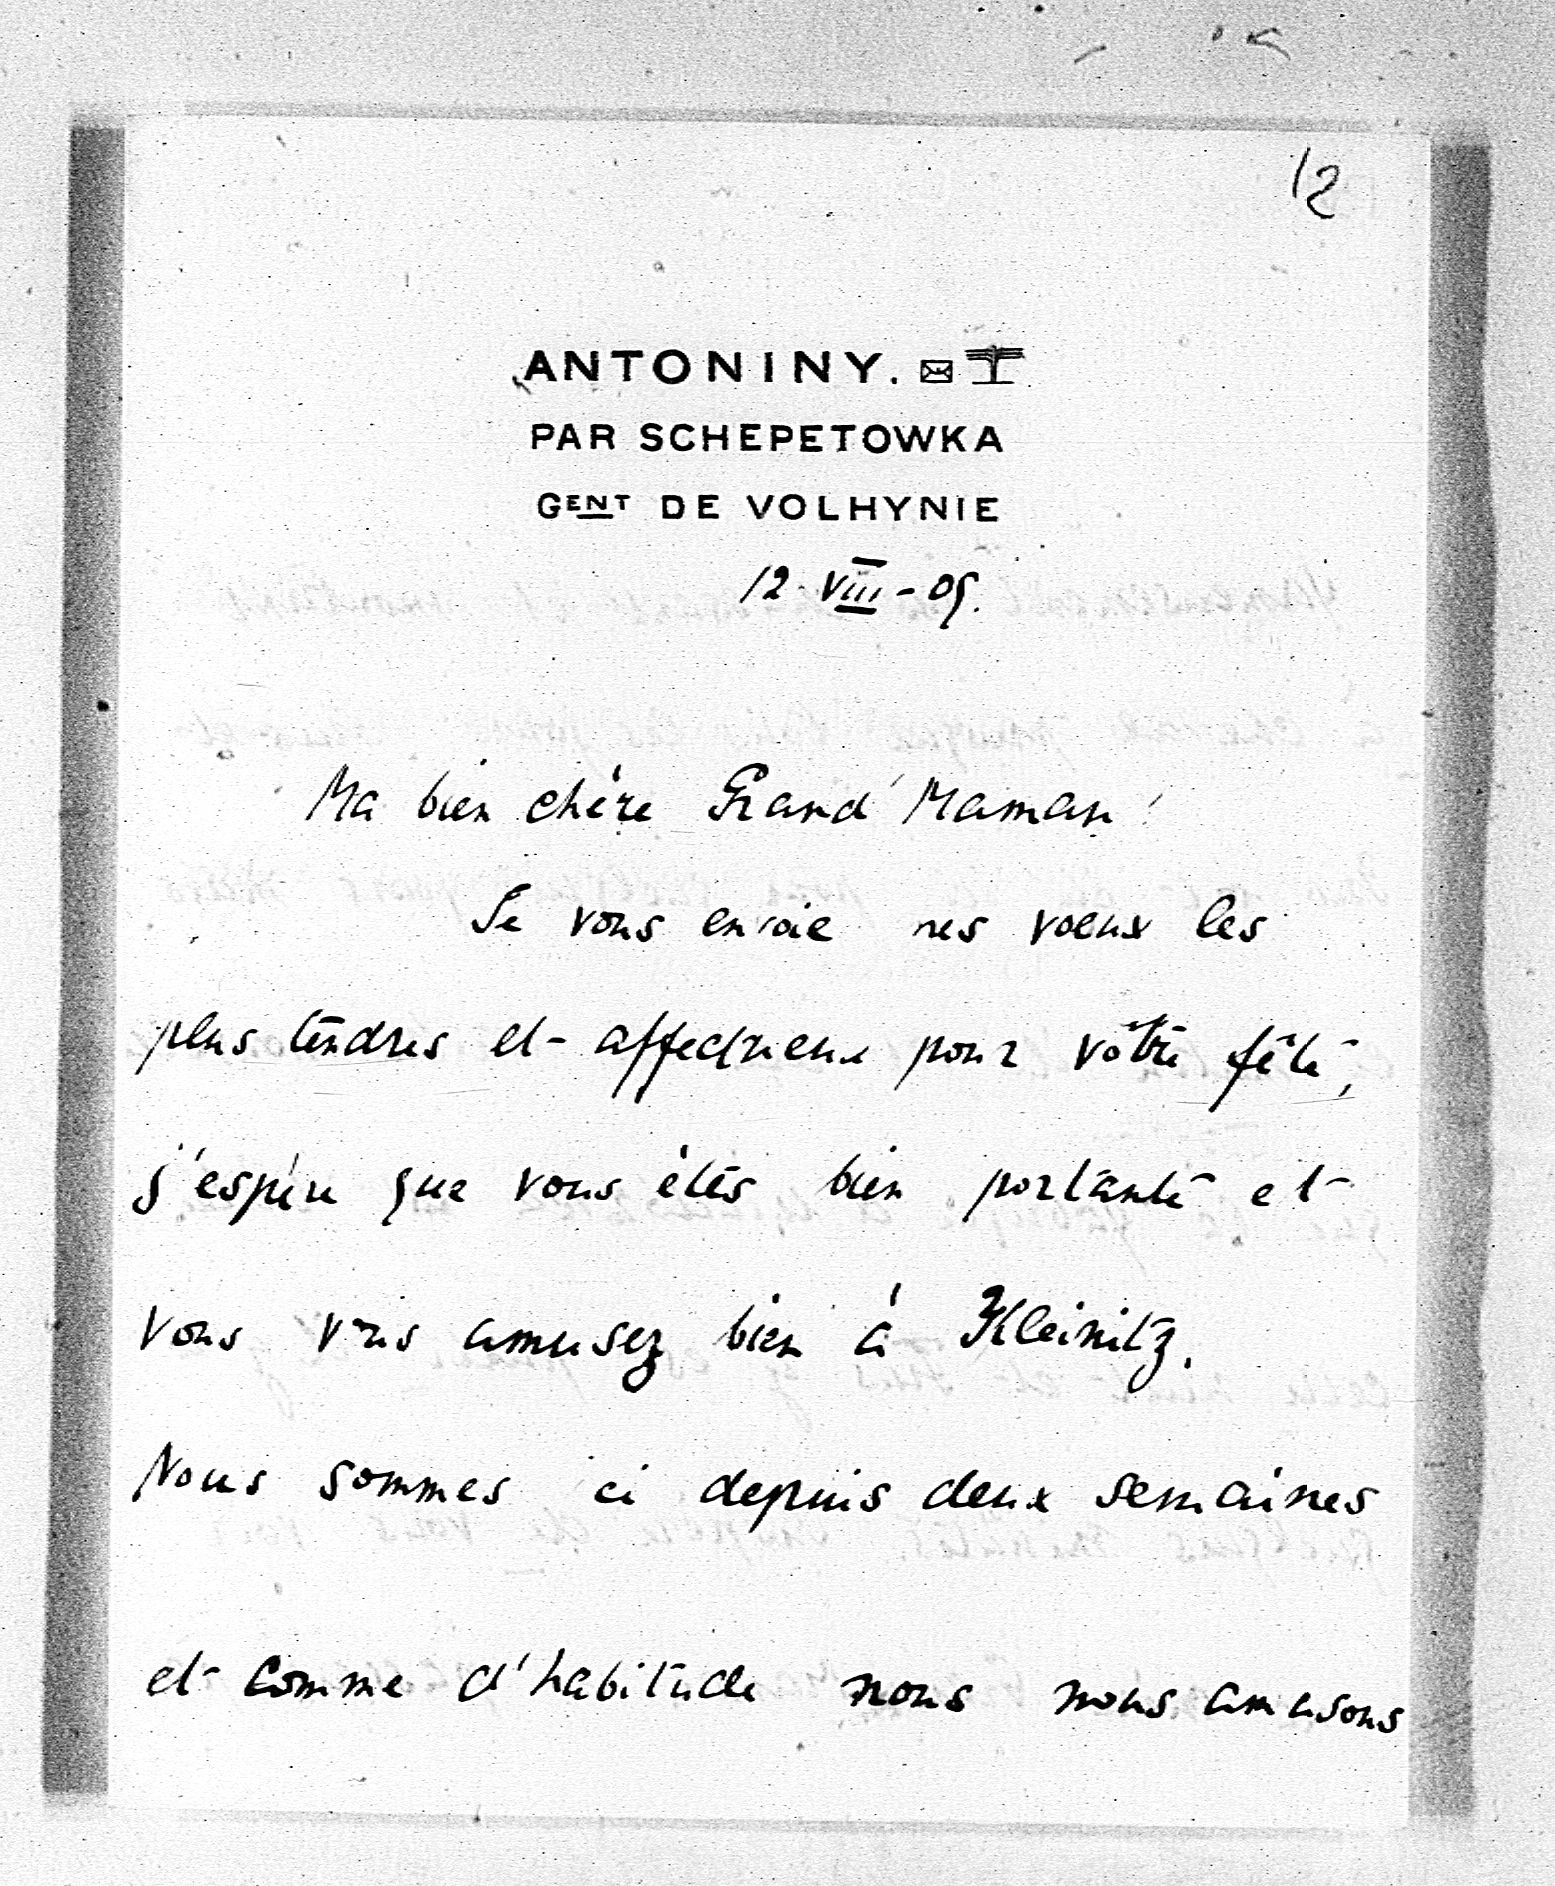 12
ANTONINY.
PAR SCHEPETOWKA
GENT DE VOLHYNIE
12 VIII - 09.
Ma bien chère Grand'Maman!
Je vous envoie mes voeux les
plus tendres et affectueux pour vôtre fête,
j'espère que vous êtes bien portante et
vous vous amusez bien à Kleinitz.
Nous sommes ici depuis deux semaines
et comme d'habitude nous nous amusons